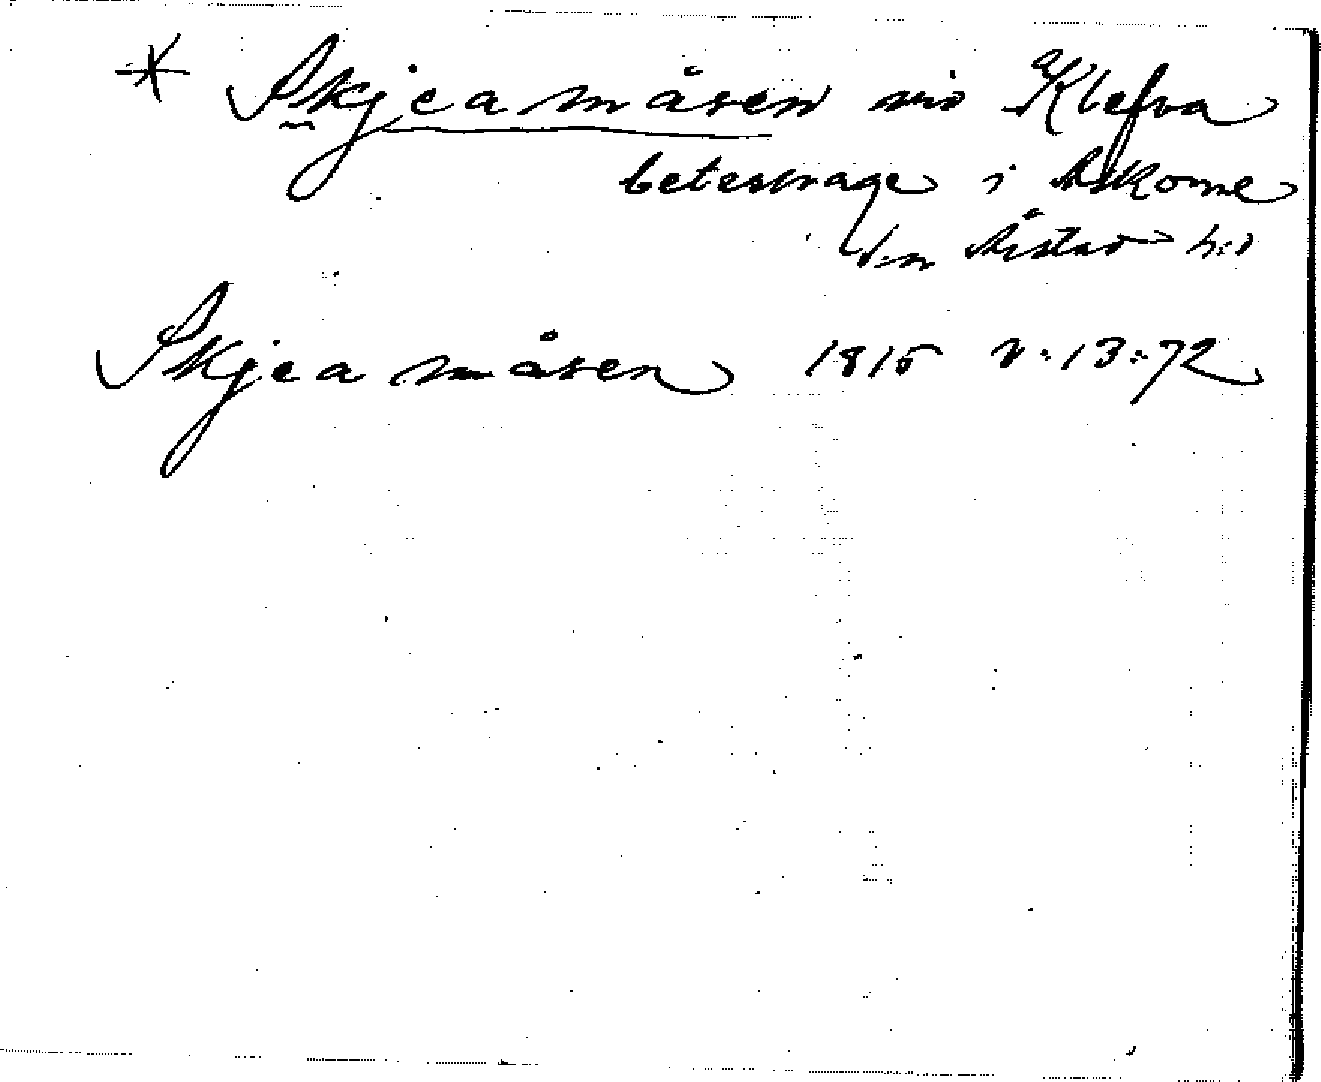 * Skjeamåsen vid Klefva
beteshage i Askome
s:n Årstad h:d
Skjeamåsen 1815 V:13:72